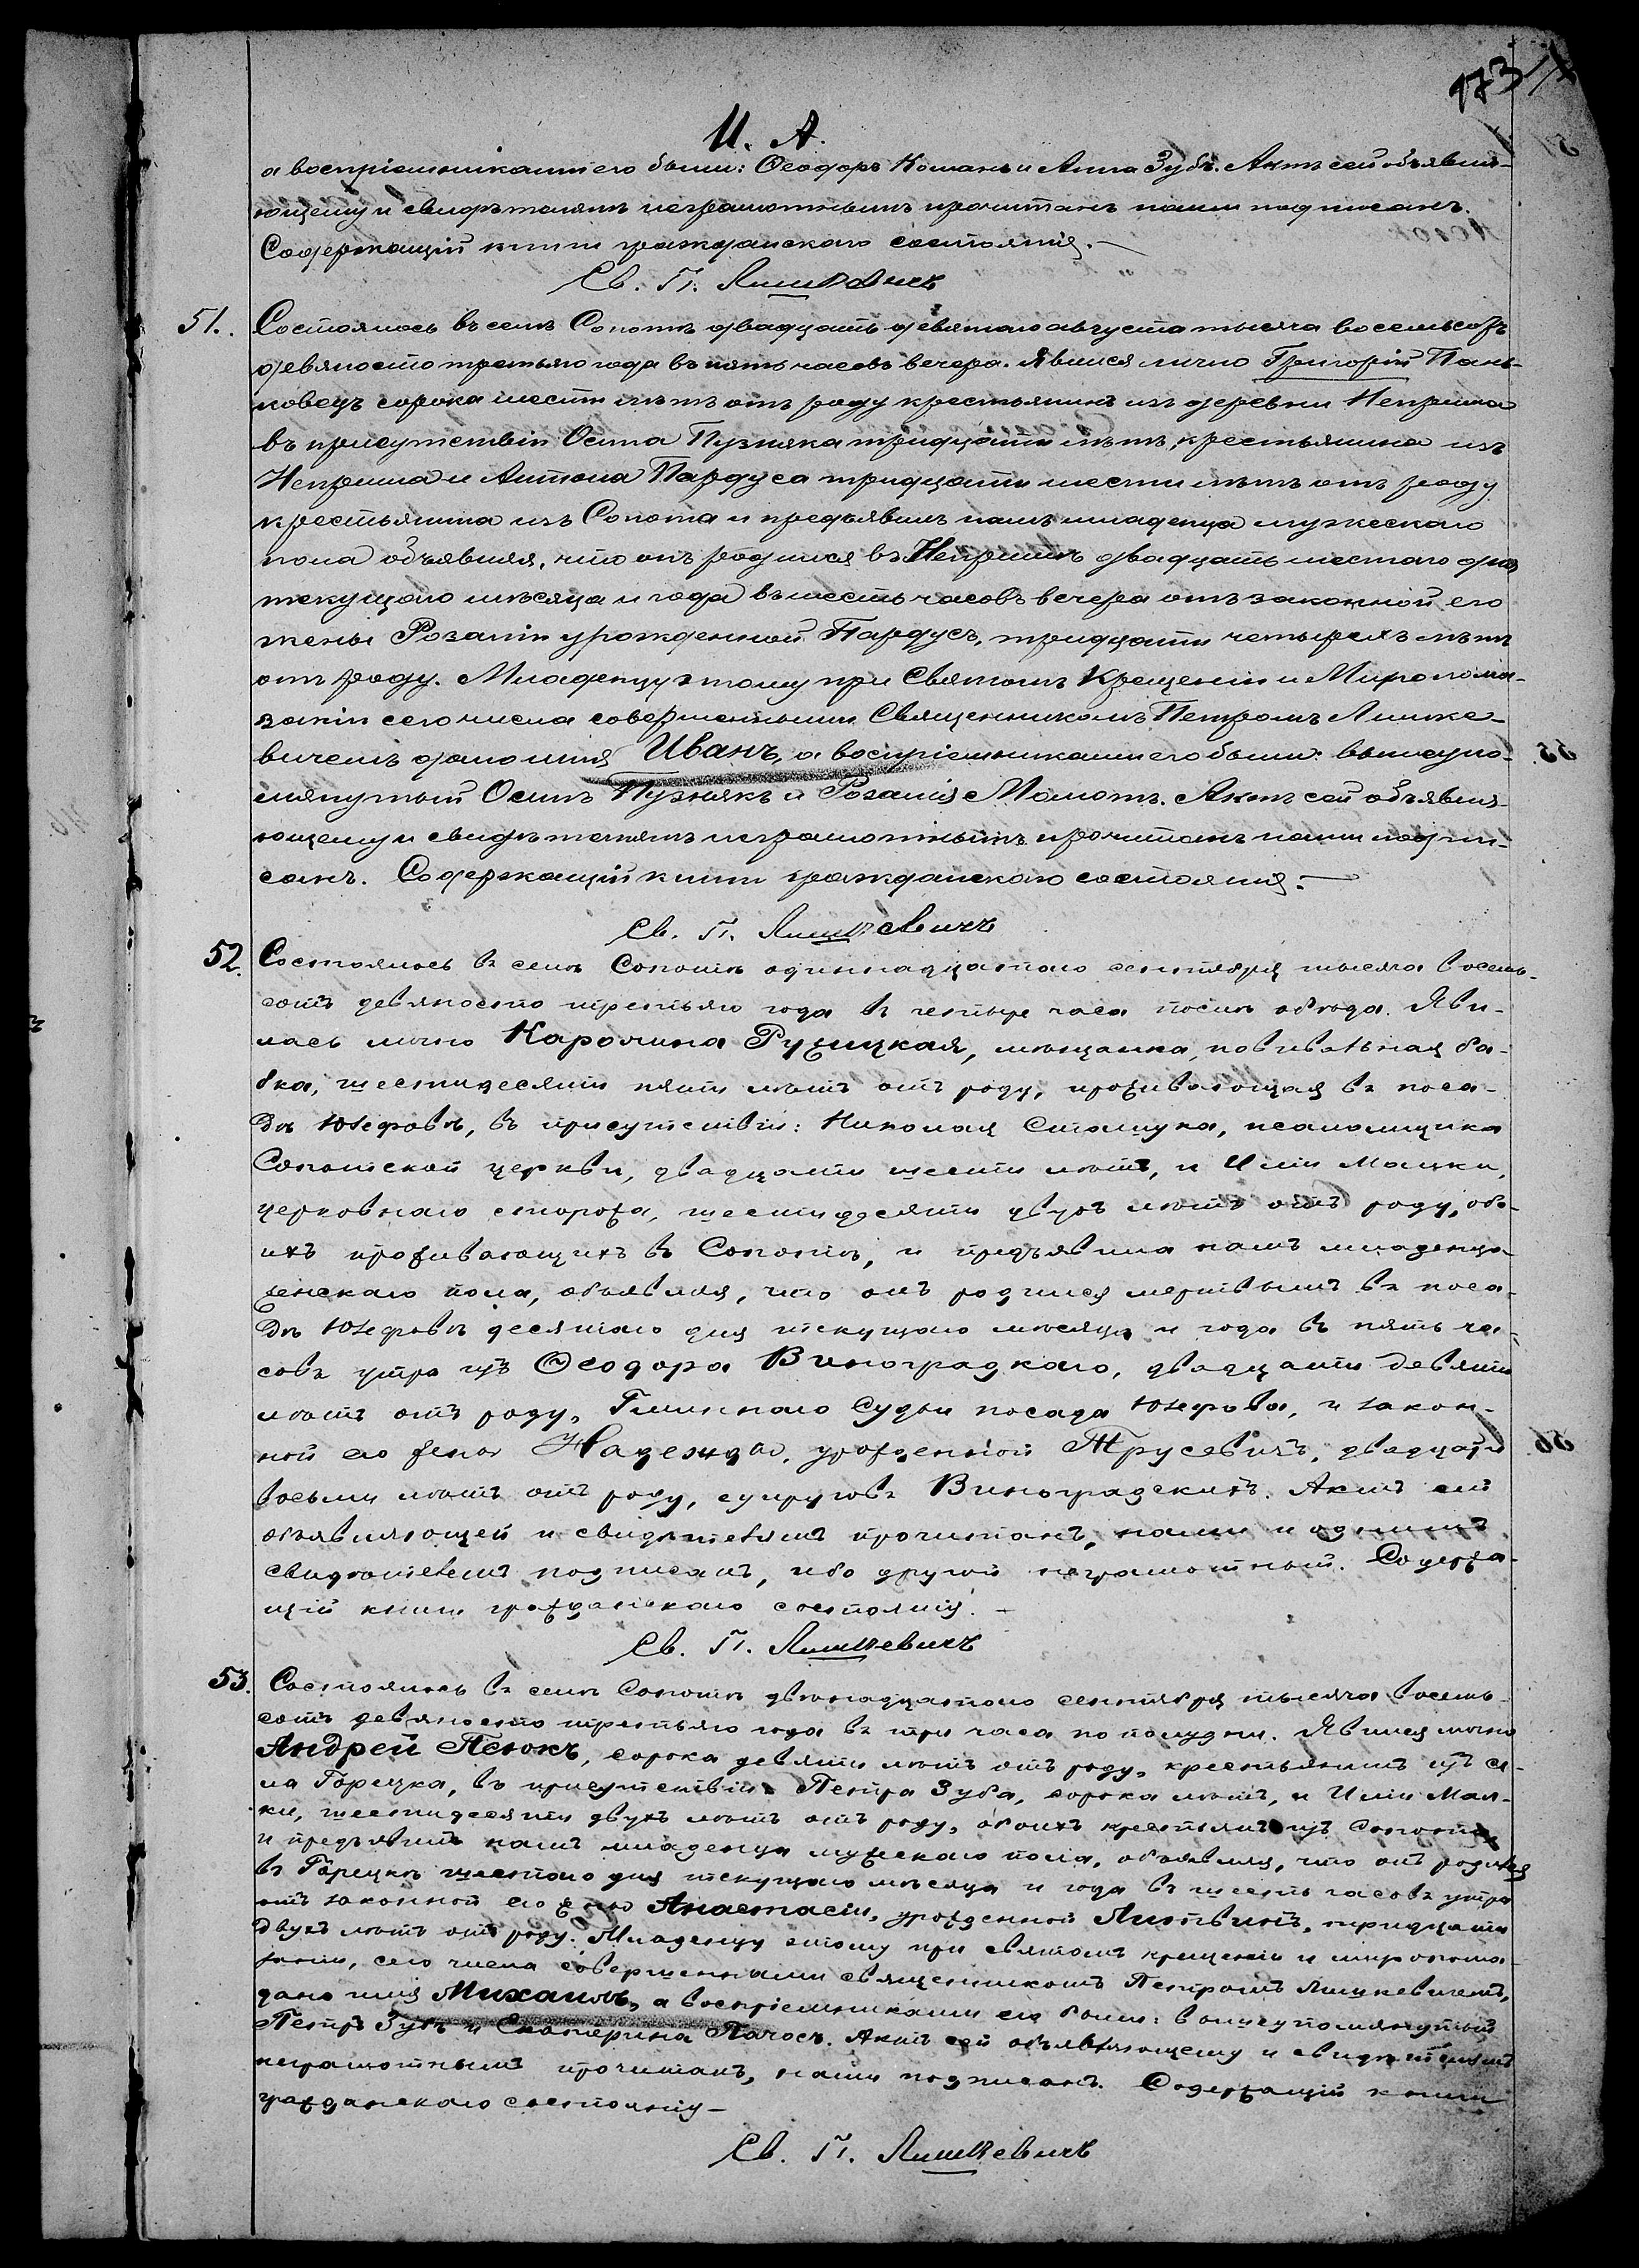 173
И. А.
а воспріемниками его были: Ѳеодоръ Команъ и Анна Зубъ. Актъ сей объявля-
ющему и свидѣтелямъ неграмотнымъ прочитанъ нами подписанъ.
Содержащій книги гражданскаго состоянія.—
Св. П. Лишкевичъ
51. Состоялось въ селѣ Сопотѣ двадцать девятаго августа тысяча восемьсотъ
девяносто третьяго года въ пять часовъ вечера. Явился лично Григорій Пань-
ковецъ сорока шести лѣтъ отъ роду крестьянинъ изъ деревни Неприша
въ присутствіи Осипа Пузняка тридцати лѣтъ, крестьянина изъ
Неприша и Антона Пардуса тридцати шести лѣтъ отъ роду
крестьянина изъ Сопота и предъявилъ намъ младенца мужескаго
пола объявляя, что онъ родился въ Непришѣ двадцать шестаго дня
текущаго мѣсяца и года въ шесть часовъ вечера отъ законной его
жены Розаліи урожденной Пардусъ, тридцати четырехъ лѣтъ
отъ роду. Младенцу этому при Святомъ Крещеніи и Миропома-
заніи сего числа совершенными Священникомъ Петромъ Лишке-
вичемъ дано имя Иванъ, а воспріемниками его были: вышеупо-
мянутый Осипъ Пузнякъ и Розалія Мамотъ. Актъ сей объявля-
ющему и свидѣтелямъ неграмотнымъ прочитанъ нами подпи-
санъ. Содержащій книги гражданскаго состоянія.—
Св. П. Лишкевичъ
52. Состоялось въ селѣ Сопотѣ одиннадцатаго сентября тысяча восемь-
сотъ девяносто третьяго года въ четыре часа послѣ обѣда. Яви-
лась лично Каролина Ружицкая, мѣщанка, повивальная ба-
бка, шестидесяти пяти лѣтъ отъ роду, проживающая въ поса-
дѣ Юзефовѣ, въ присутствіи: Николая Сташука, псаломщика
Сопотской церкви, двадцати шести лѣтъ, и Иліи Малки,
церковнаго сторожа, шестидесяти двухъ лѣтъ отъ роду, обо-
ихъ проживающихъ въ Сопотѣ, и предъявила намъ младенца
женскаго пола, объявляя, что онъ родился мертвымъ въ поса-
дѣ Юзефовѣ десятаго дня текущаго мѣсяца и года въ пять ча-
совъ утра изъ Ѳеодора Виноградкаго, двадцати девяти
лѣтъ отъ роду, Гминнаго Судьи посада Юзефова, и закон-
ной его жены Надежды, урожденной Трусевичъ, двадцати
восьми лѣтъ отъ роду, супруговъ Виноградскихъ. Актъ сей
объявляющей и свидѣтелямъ прочитанъ, нами и однимъ
свидѣтелемъ подписанъ, ибо другой неграмотный. Содержа-
щій книги гражданскаго состоянія.—
Св. П. Лишкевичъ
53. Состоялось въ селѣ Сопотѣ двѣнадцатаго сентября тысяча восемь-
сотъ девяносто третьяго года въ три часа по полудни. Явился лично
Андрей Псюкъ, сорока девяти лѣтъ отъ роду, крестьянинъ изъ се-
ла Горецка, въ присутствіи Петра Зуба, сорока лѣтъ, и Иліи Мал-
ки, шестидесяти двухъ лѣтъ отъ роду, обоихъ крестьянъ изъ Сопота,
и предъявилъ намъ младенца мужескаго пола, объявляя, что онъ родился
въ Горецкѣ шестаго дня текущаго мѣсяца и года въ шесть часовъ утра
отъ законной его жены Анастасіи, урожденной Литвинъ, тридцати
двухъ лѣтъ отъ роду. Младенцу этому при святомъ крещеніи и миропома-
заніи, сего числа совершенными священникомъ Петромъ Лишкевичемъ,
дано имя Михаилъ, а воспріемниками его были: вышеупомянутый
Петръ Зубъ и Екатерина Пачосъ. Актъ сей объявляющему и свидѣтелямъ
неграмотнымъ прочитанъ, нами подписанъ. Содержащій книги
гражданскаго состоянія—
Св. П. Лишкевичъ